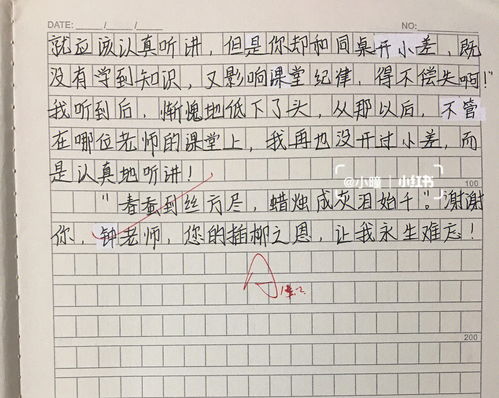 DATE: / / NO:
就应该认真听讲，但是你却和同桌开小差，既
没有学到知识，又影响课堂纪律，得不偿失啊！”
我听到后，惭愧地低下了头，从那以后，不管
在哪位老师的课堂上，我再也没开过小差，而
是认真地听讲！
@小曈 小红书
100
“春蚕到丝方尽，蜡烛成灰泪始干”。谢谢
你，钟老师，您的插柳之恩，让我永生难忘！
A
200